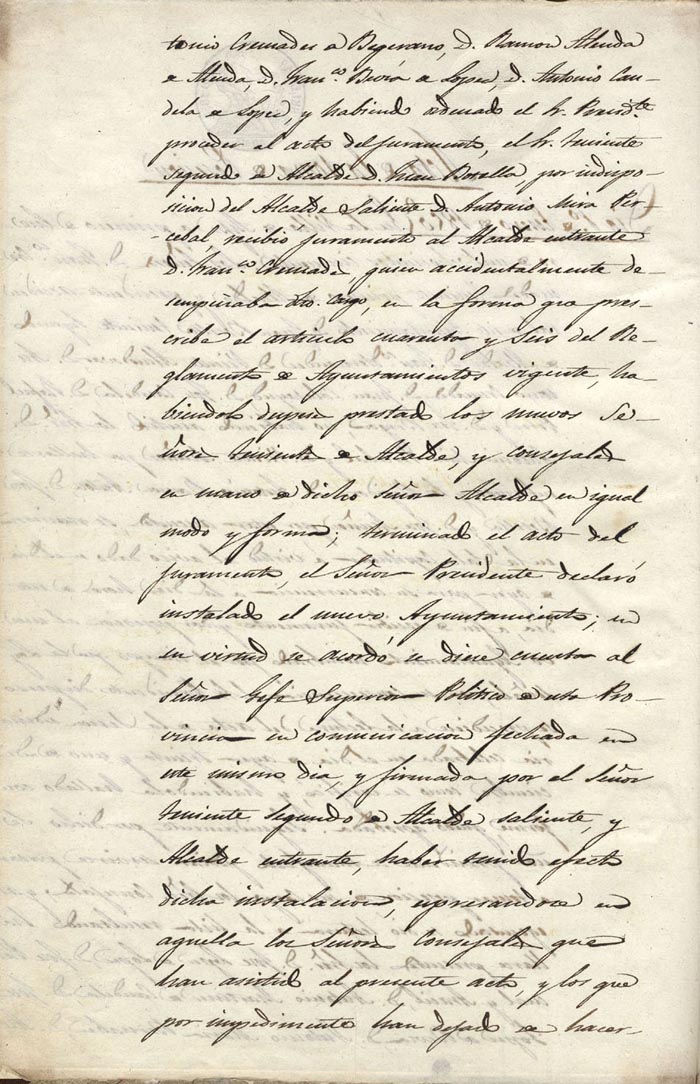 tonio Cremades de Begerano, D. Ramon Alenda
de Alenda, D. Fran.co Berá de Lopez, D. Antonio Can-
dela de Lopez, y habiendo ordenado el Sr. Presid.te
proceder al acto del juramento, el Sr. Teniente
segundo de Alcalde D. Juan Botella, por indispo-
sicion del Alcalde saliente D. Antonio Mira Per-
cebal, recibió juramento al Alcalde entrante
D. Fran.co Cremades, quien accidentalmente de-
sempeñaba dho. cargo, en la forma que pres-
cribe el articulo cuarenta y seis del Re-
glamento de Ayuntamientos vigente, ha-
biendolo despues prestado los nuevos Se-
ñores Teniente de Alcalde, y consejales
en mano de dicho Señor Alcalde en igual
modo y forma; terminado el acto del
juramento, el Señor Presidente declaró
instalado el nuevo Ayuntamiento; en
su virtud se acordó se diese cuenta al
Señor Gefe Superior Politico de esta Pro-
vincia en comunicacion fechada en
este mismo dia, y firmada por el Señor
Teniente segundo de Alcalde saliente, y
Alcalde entrante, haber tenido efecto
dicha instalacion, espresandose en
aquella los Señores Consejales que
han asistido al presente acto, y los que
por impedimento han dejado de hacer-